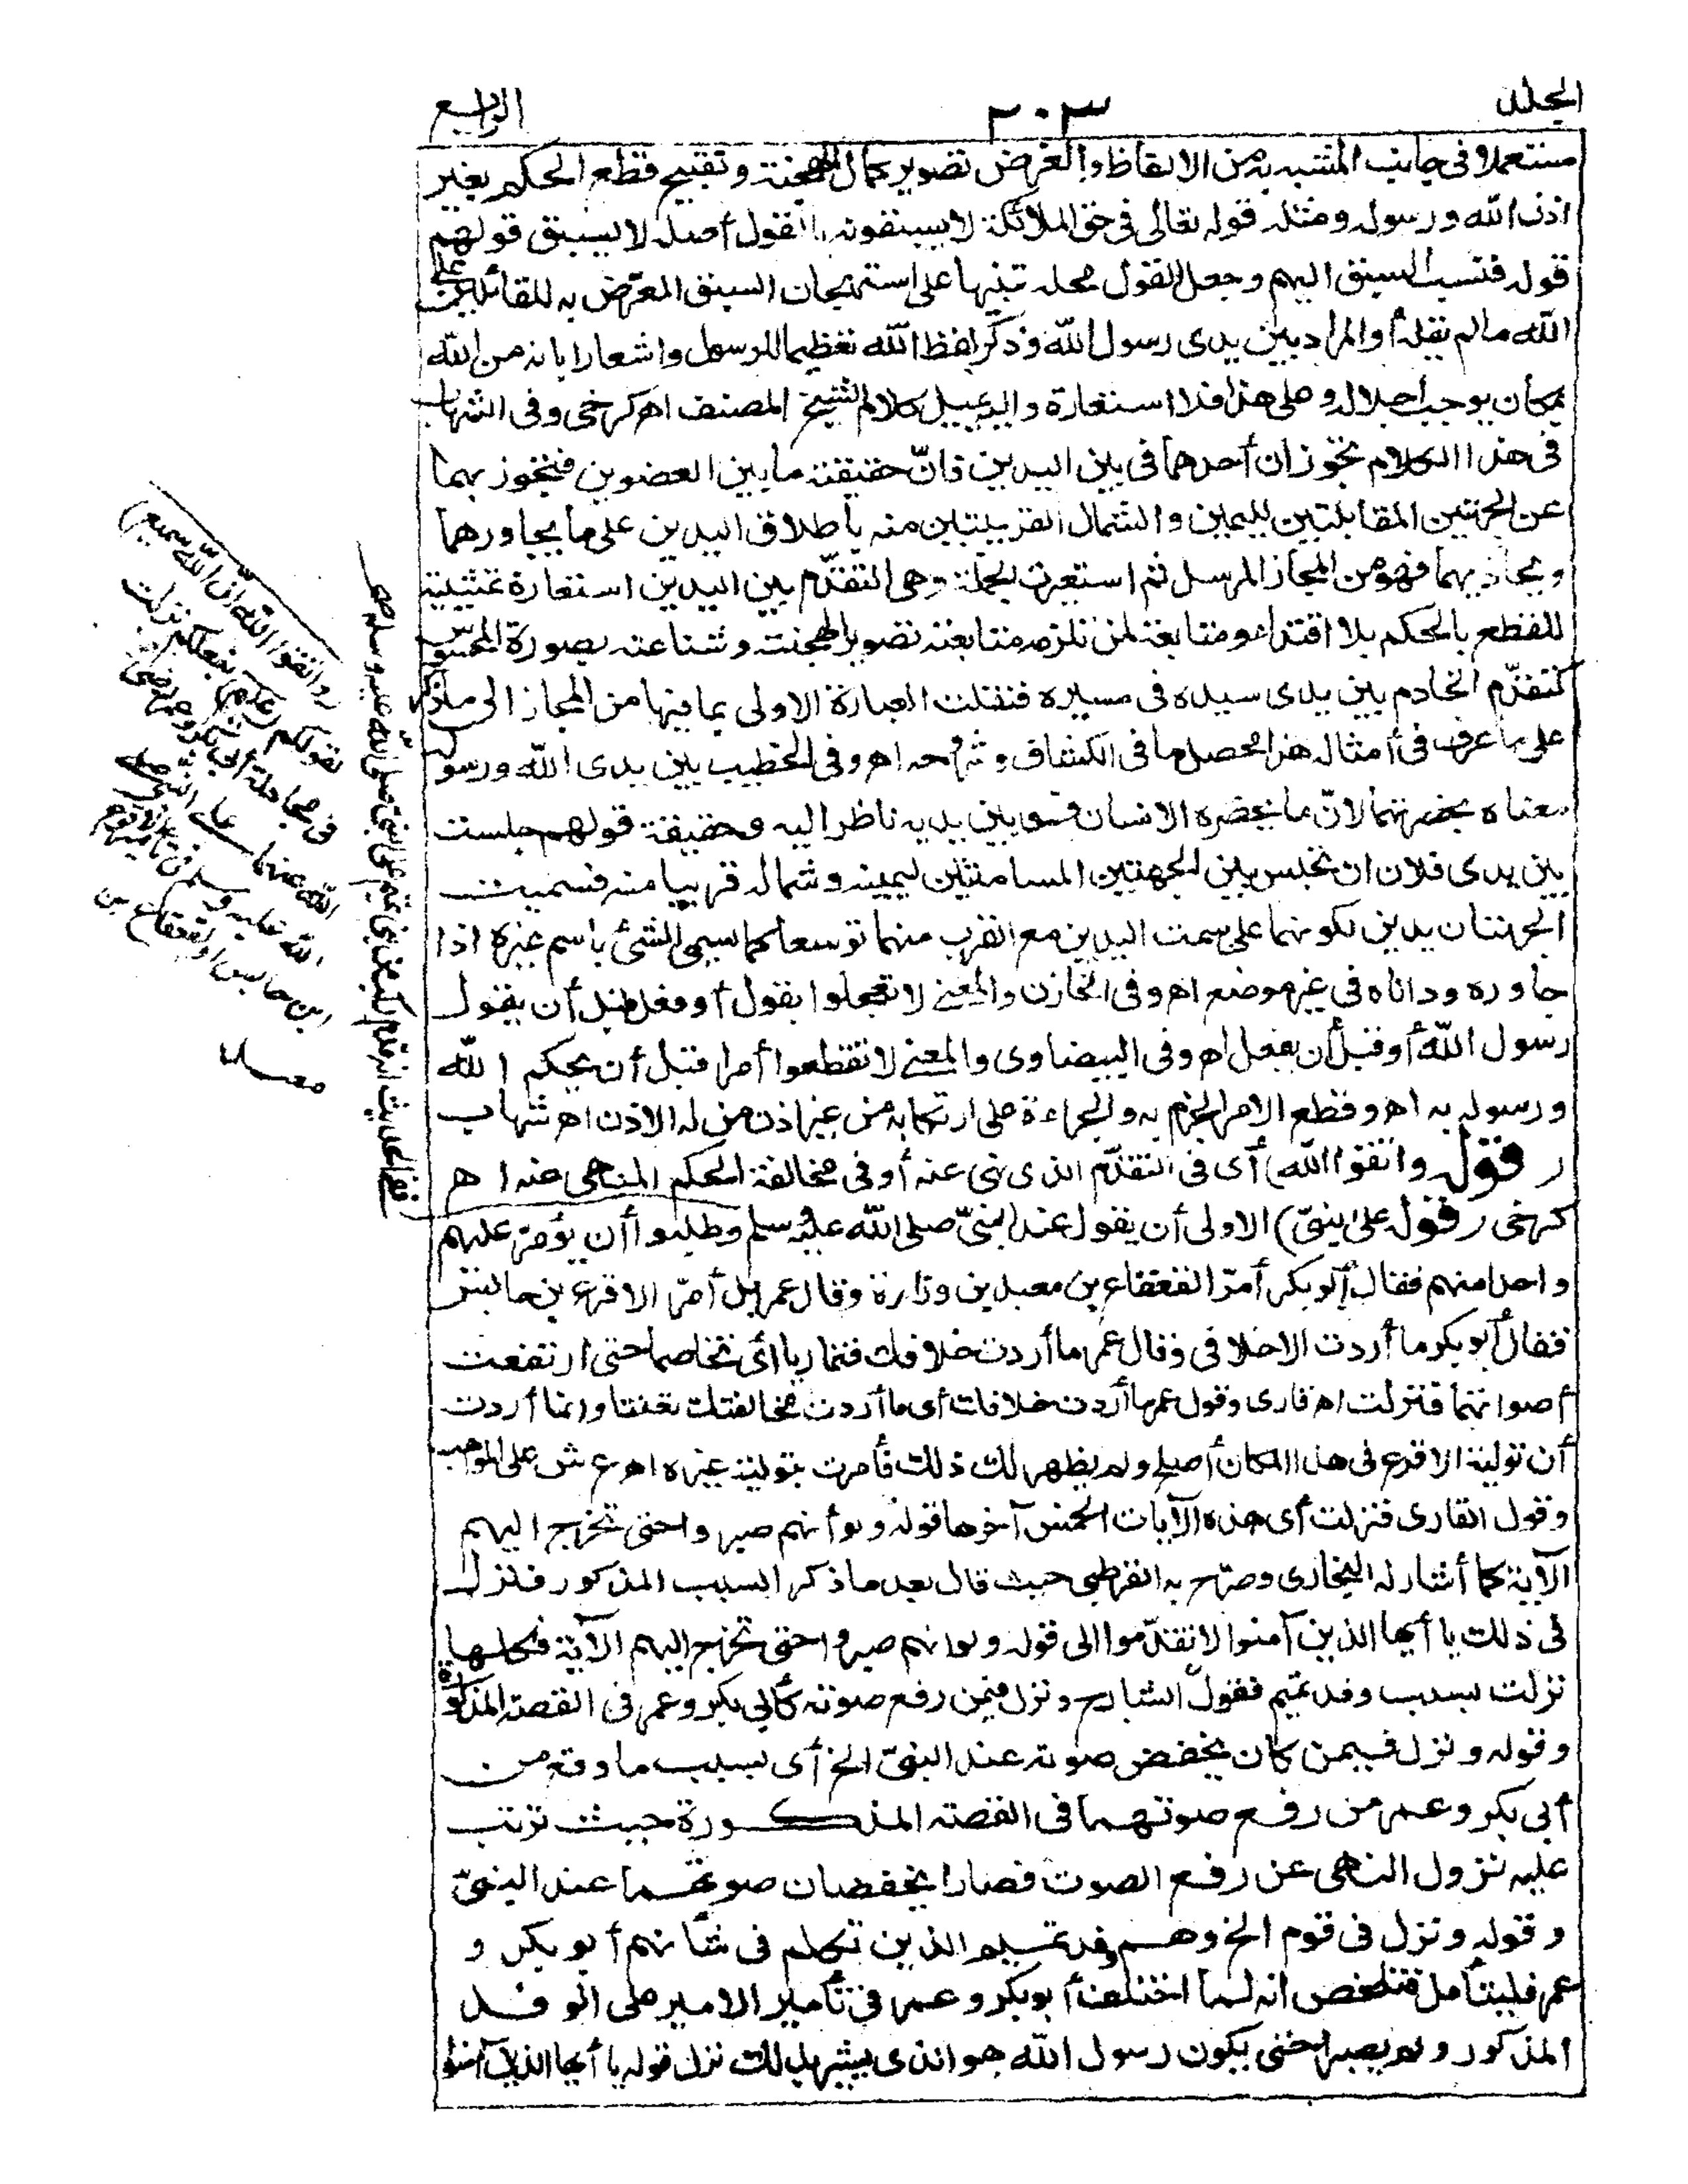 المجلد ٢٠٣ الرابع
مستعملا فى جانب المشبه به من الالفاظ والغرض تصوير كمال الهجنة وتقبيح قطع الحكم بغير
اذن الله ورسوله ومثله قوله تعالى فى حق الملائكة لا يسبقونه بالقول أصله لا يسبق قولهم
قوله فنسب السبق اليهم وجعل القول محله تنبيها على استهجان السبق المعرّض به للقائلين على
الله ما لم يقله أو المراد بين يدى رسول الله وذكر لفظ الله تعظيما للرسول واشعارا بانه من الله
بمكان يوجب اجلاله وعلى هذا فلا استعارة واليه يميل كلام الشيخ المصنف اه كرخى وفى الشهاب
فى هذا الكلام تجوزان أحدهما فى بين اليدين فانّ حقيقته ما بين العضوين فتجوز بهما
عن الجهتين المقابلتين لليمين والشمال القريبتين منه باطلاق اليدين على ما يجاورهما
ويحاذيهما فهو من المجاز المرسل ثم استعيرت الجملة وهى التقدّم بين اليدين استعارة تمثيلية
للقطع بالحكم بلا اقتداء ومتابعة لمن تلزمه متابعته تصويرا لهجنته وشناعته بصورة المحسوس
كتقدّم الخادم بين يدى سيده فى مسيره فنقلت العبارة الاولى بما فيها من المجاز الى ما ذكر
على ما عرف فى أمثاله هذا محصل ما فى الكشاف وشروحه اه وفى الخطيب بين يدى الله ورسوله
معناه بحضرتهما لانّ ما يحضره الانسان فهو بين يديه ناظر اليه وحقيقة قولهم جلست
بين يدى فلان ان تجلس بين الجهتين المسامتتين ليمينه وشماله قريبا منه فسميت
الجهتان يدين لكونهما على سمت اليدين مع القرب منهما توسعا كما يسمى الشئ باسم غيره اذا
جاوره وداناه فى غير موضع اه وفى الخازن والمعنى لا تعجلوا بقول أو فعل قبل أن يقول
رسول الله أو قبل أن يفعل اه وفى البيضاوى والمعنى لا تقطعوا أمرا قبل أن يحكم الله
ورسوله به اه وقطع الامر الجزم به والجراءة على ارتكابه من غير اذن من له الاذن اه شهاب
(قوله واتقوا الله) أى فى التقدّم الذى نهى عنه أو فى مخالفة الحكم المنهى عنه اه
كرخى (قوله على النبىّ) الاولى أن يقول عند النبىّ صلى الله عليه وسلم وطلبوا أن يؤمّر عليهم
واحدا منهم فقال أبو بكر أمّر القعقاع بن معبد بن وزارة وقال عمر بل أمّر الاقرع بن حابس
فقال أبو بكر ما أردت الا خلافى وقال عمر ما أردت خلافك فتماريا أى تخاصما حتى ارتفعت
أصواتهما فنزلت اه قارى وقول عمر ما أردت خلافك أى ما أردت مخالفتك تعنتا وانما أردت
أن تولية الاقرع فى هذا المكان أصلح ولم يظهر لك ذلك فأمرت بتولية غيره اه ع ش على المواهب
وقول القارى فنزلت أى هذه الآيات الخمس آخرها قوله ولو أنهم صبروا حتى تخرج اليهم
الآية كما أشار له البخارى وصرّح به القرطبى حيث قال بعد ما ذكر السبب المذكور فنزل
فى ذلك يا أيها الذين آمنوا لا تقدّموا الى قوله ولو انهم صبروا حتى تخرج اليهم الآية فكلها
نزلت بسبب وفد تميم فقول الشارح ونزل فيمن رفع صوته كأبى بكر وعمر فى القصة المذكورة
وقوله ونزل فيمن كان يخفض صوته عند النبىّ الخ أى بسبب ما وقع من
أبى بكر وعمر من رفع صوتهما فى القصة المذكورة حيث ترتب
عليه نزول النهى عن رفع الصوت فصارا يخفضان صوتهما عند النبىّ
وقوله ونزل فى قوم الخ وهم وفد تميم الذين تكلم فى شأنهم أبو بكر و
عمر فليتأمل فتلخص انه لما اختلف أبو بكر وعمر فى تأمير الامير على الوفد
المذكور ولم يصبرا حتى يكون رسول الله هو الذى يشير بذلك نزل قوله يا أيها الذين آمنوا
(واتقوا الله انّ الله سميع)
لقولكم (عليم) بفعلكم نزلت
فى مجادلة أبى بكر وعمر رضى
الله عنهما على النبى صلى
الله عليه وسلم فى تأمير الاقرع
ابن حابس او القعقاع بن
معبد